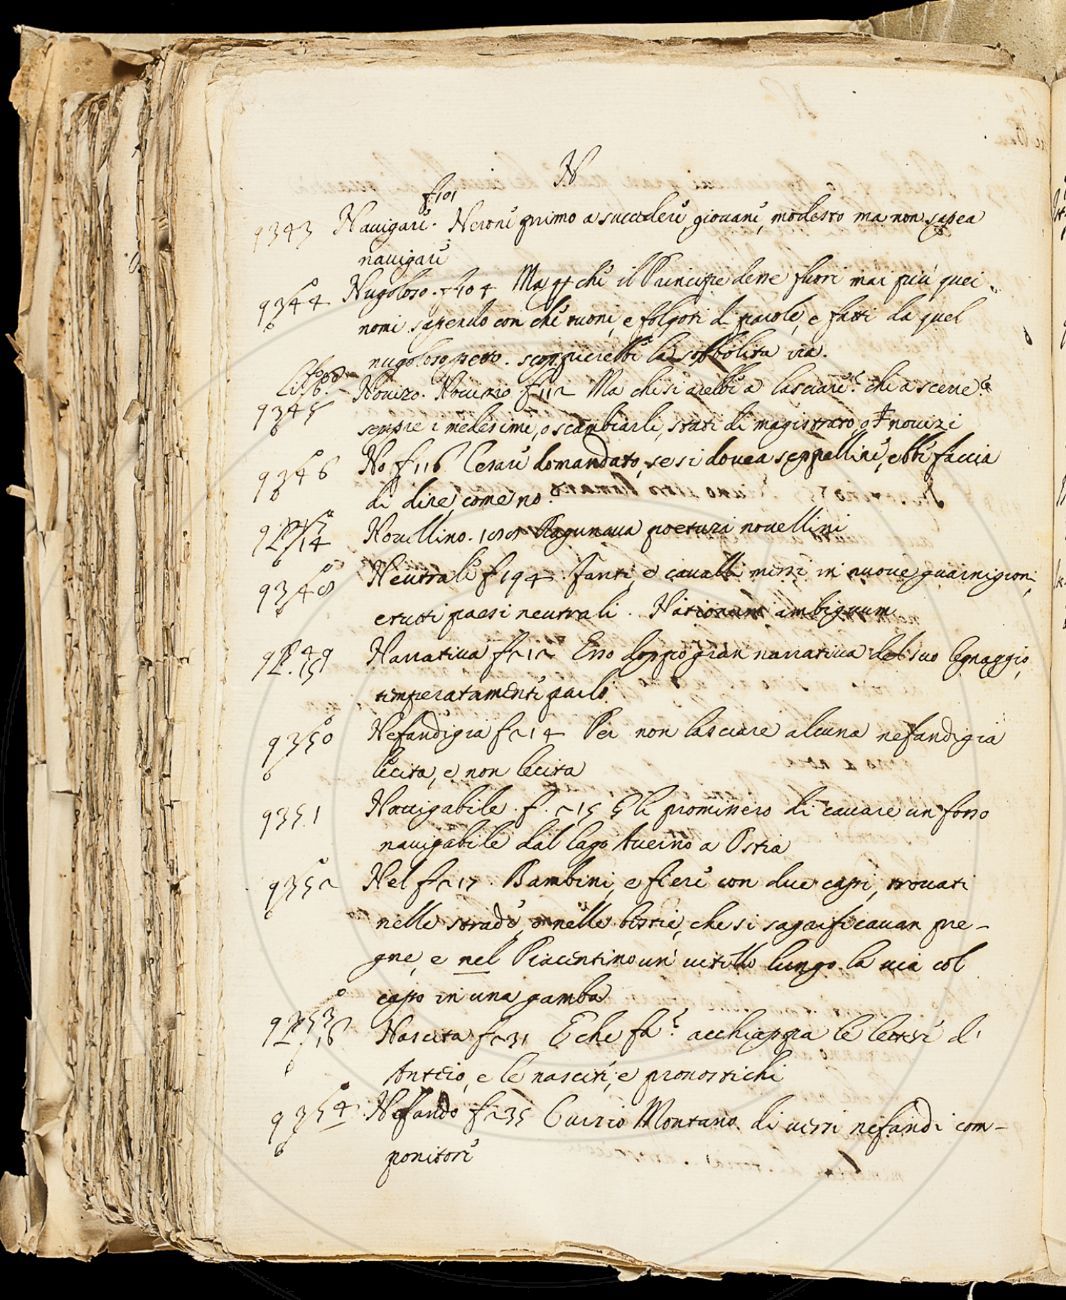 N
f 101
9343 Nauigare. Nerone primo a succedere, giouane, modesto ma non sapea
nauigare
9344 Nugoloso. f 104 Ma perche il Principe dette fuori mai più quei
nomi sapendo con che tuoni, e folgori di parole, e fatti da quel
nugoloso petto
Lib.
9345 Nouizo. Nouizio f 112 Ma che si arebbe a lasciare? chi ascenne?
sempre i medesimi, o scambiarli, stati di magistrato, o nouizi
9346 No f 116 Cesare domandato, se si douea seppellire, ebbi faccia
di dire, come no?
Nouellino. Ragunaua poetuzi nouellini
9348 Neutrale f 194. fanti, e cavalli messi in nuoue guarnigioni,
e tutti paesi neutrali. Nationum ambiguum
9349 Narratiua f 212 Esso doppo gran narratiua del suo legnaggio,
temperatamente parlò
9350 Nefandigia f 214 Per non lasciare alcuna nefandigia
lecita, e non lecita
9351 Nauigabile. f. 215 Gli promissero di cauare un fosso
nauigabile dal lago Auerno a Ostia
9352 Nel f 217. Bambini, e fiere con due capi, trouati
nelle strade, o nelle bestie, che si sagrificauan pre-
gne, e nel Piacentino un' uitello lungo la uia col
capo in una gamba
9353 Nascita f 231 E che fa? acchiappa le lettere d'
Anteio, e le nascite, e pronostichi
9354 Nefando f 235 Curzio Montano di uersi nefandi com-
ponitore